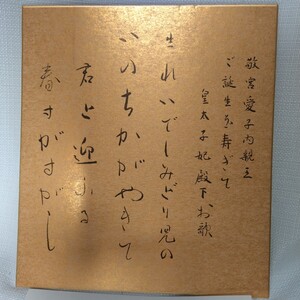 敬宮愛子内親王
ご誕生を寿ぎて
皇太子妃殿下お歌
生れいでしみどり児の
いのちかがやきて
君と迎ふる
春すがすがし